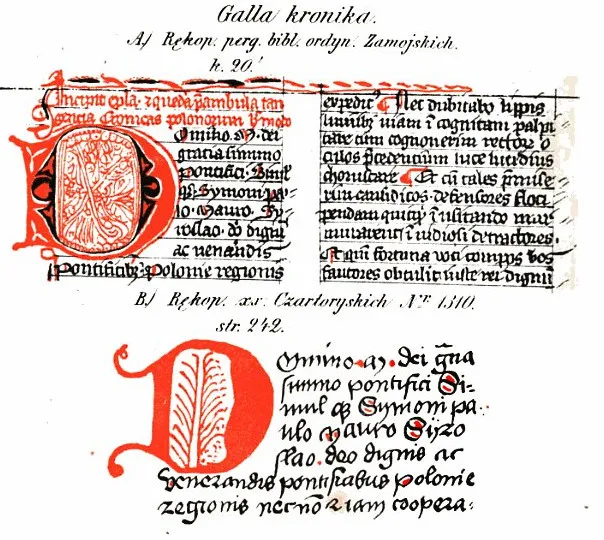 Galla kronika.
A) Rękop. perg. bibl. ordyn. Zamojskich.
k. 20.'
Incipit epla & queda pambula tan
gencia Cronicas polonorum
Domino. M. dei
gracia summo
pontifici Simul
q3. Symoni pa
lo. Mauro. Sy
do dign
ac venandis
Pontificib3. Polonie regionis
expedit Nec dubitabo
viam i cognitam palpi
tare cum cognoverim rectore o
culos luce lucidius
choruscare Et cu tales
causidicos defensores floci
pendam quicqd
murmuraverit detractores.
Et fortuna voti compos vos
fautores obtulit iuste rei dignu
B) Rękop. xx. Czartoryskich Nr. 1310.
str. 242.
Domino. M. dei gra
summo pontifici Si-
mul q3 Symoni pa-
ulo mauro Syro
slao. deo dignis ac
venerandis pontificibus polonie
regionis nec no etiam coopera-